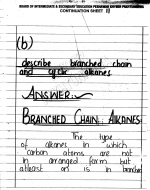 BOARD OF INTERMEDIATE & SECONDARY EDUCATION
CONTINUATION SHEET
(b)
describe branched chain
and cyclic alkanes
ANSWER:-
BRANCHED CHAIN ALKANES:
The type
of alkanes in which
carbon atoms are not
in arranged form but
atleast on is in branched